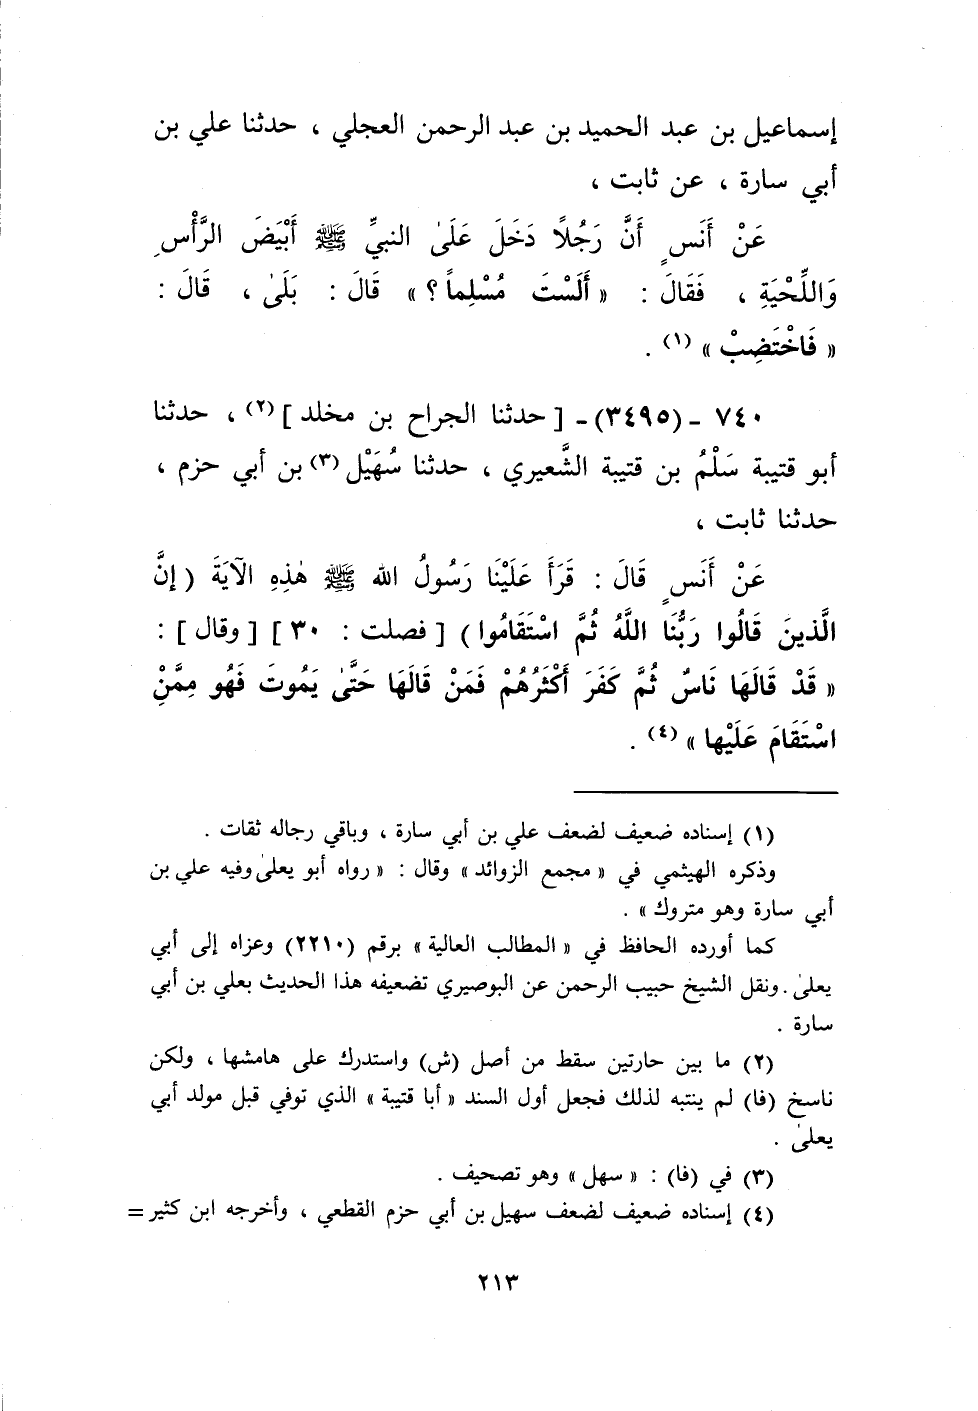 إسماعيل بن عبد الحميد بن عبد الرحمن العجلي ، حدثنا علي بن
أبي سارة ، عن ثابت ،
عَنْ أَنَسٍ أَنَّ رَجُلاً دَخَلَ عَلَىٰ النبيِّ ﷺ أَبْيَضَ الرَّأْسِ
وَاللِّحْيَةِ ، فَقَالَ : « أَلَسْتَ مُسْلِماً ؟ » قَالَ : بَلَىٰ ، قَالَ :
« فَاخْتَضِبْ » (١) .
٧٤٠ ـ (٣٤٩٥) ـ [ حدثنا الجراح بن مخلد ] (٢) ، حدثنا
أبو قتيبة سَلْمُ بن قتيبة الشَّعيري ، حدثنا سُهَيْل (٣) بن أبي حزم ،
حدثنا ثابت ،
عَنْ أَنَسٍ قَالَ : قَرَأَ عَلَيْنَا رَسُولُ الله ﷺ هٰذِهِ الآيَةَ ( إِنَّ
الَّذينَ قَالُوا رَبُّنَا اللَّهُ ثُمَّ اسْتَقَامُوا ) [ فصلت : ٣٠ ] [ وقال ] :
« قَدْ قَالَهَا نَاسٌ ثُمَّ كَفَرَ أَكْثَرُهُمْ فَمَنْ قَالَهَا حَتَّىٰ يَمُوتَ فَهُو مِمَّنِ
اسْتَقَامَ عَلَيْها » (٤) .
(١) إسناده ضعيف لضعف علي بن أبي سارة ، وباقي رجاله ثقات .
وذكره الهيثمي في « مجمع الزوائد » وقال : « رواه أبو يعلىٰ وفيه علي بن
أبي سارة وهو متروك » .
كما أورده الحافظ في « المطالب العالية » برقم (٢٢١٠) وعزاه إلى أبي
يعلىٰ . ونقل الشيخ حبيب الرحمن عن البوصيري تضعيفه هذا الحديث بعلي بن أبي
سارة .
(٢) ما بين حارتين سقط من أصل (ش) واستدرك على هامشها ، ولكن
ناسخ (فا) لم ينتبه لذلك فجعل أول السند « أبا قتيبة » الذي توفي قبل مولد أبي
يعلىٰ .
(٣) في (فا) : « سهل » وهو تصحيف .
(٤) إسناده ضعيف لضعف سهيل بن أبي حزم القطعي ، وأخرجه ابن كثير =
٢١٣